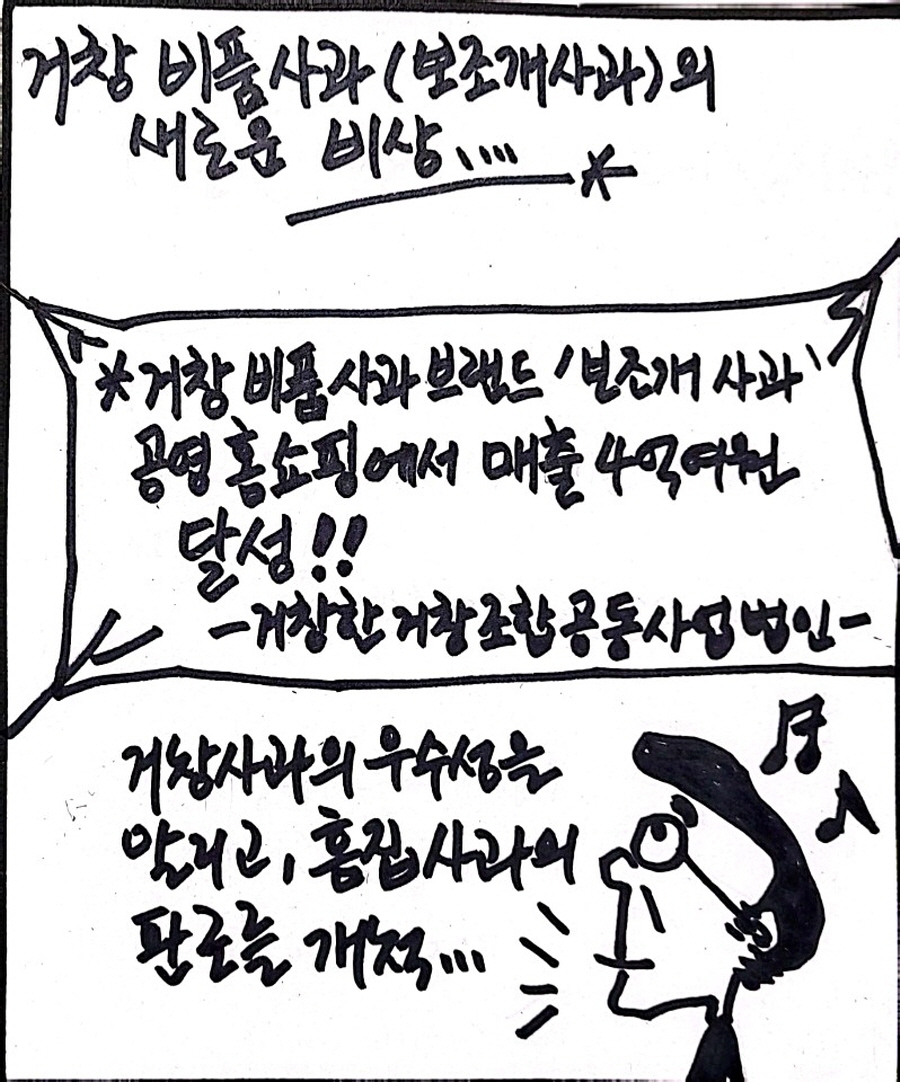 거창 비품사과(보조개사과)의
새로운 비상....
*
*거창 비품사과 브랜드 '보조개 사과'
공영홈쇼핑에서 매출 4억여원
달성!!
-거창한거창조합공동사업법인-
거창사과의 우수성을
알리고, 흠집사과의
판로를 개척...